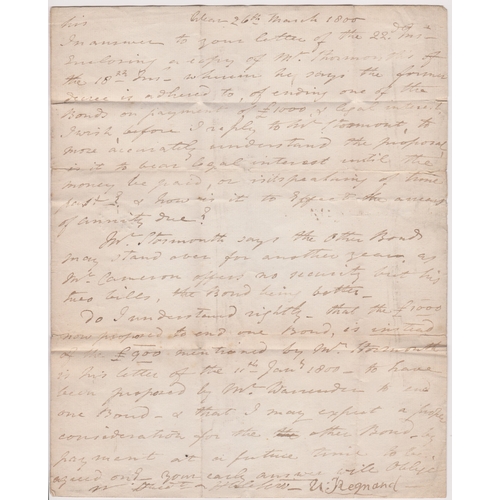 26th March 1800
In answer to your letter of the 22d Ins
Enclosing a copy of Mr Stormonth's of
the 18th Ins wherein he says the
is adhered to, of ending one of the
Bonds on payment of £1000 & legal interest
I wish, before I reply to Mr Stormont, to
more accurately understand the proposal
is it to bear legal interest until the
money be paid, or is speaking of time
& how is it to Effect the arrears
of annuity due?
Mr Stormonth says the other Bond
may stand over for another year, as
Mr Cameron offers no security but his
two bills, the Bond being better
do I understand rightly that the £1000
now proposed to end one Bond, is instead
of the £900 mentioned by Mr Stormonth
in his letter of the 11th Jany 1800 to have
been proposed by Mr Warrender to end
one Bond & that I may expect a further
consideration for the other Bond, by
payment at a future time to be
agreed on? your early answer will Oblige